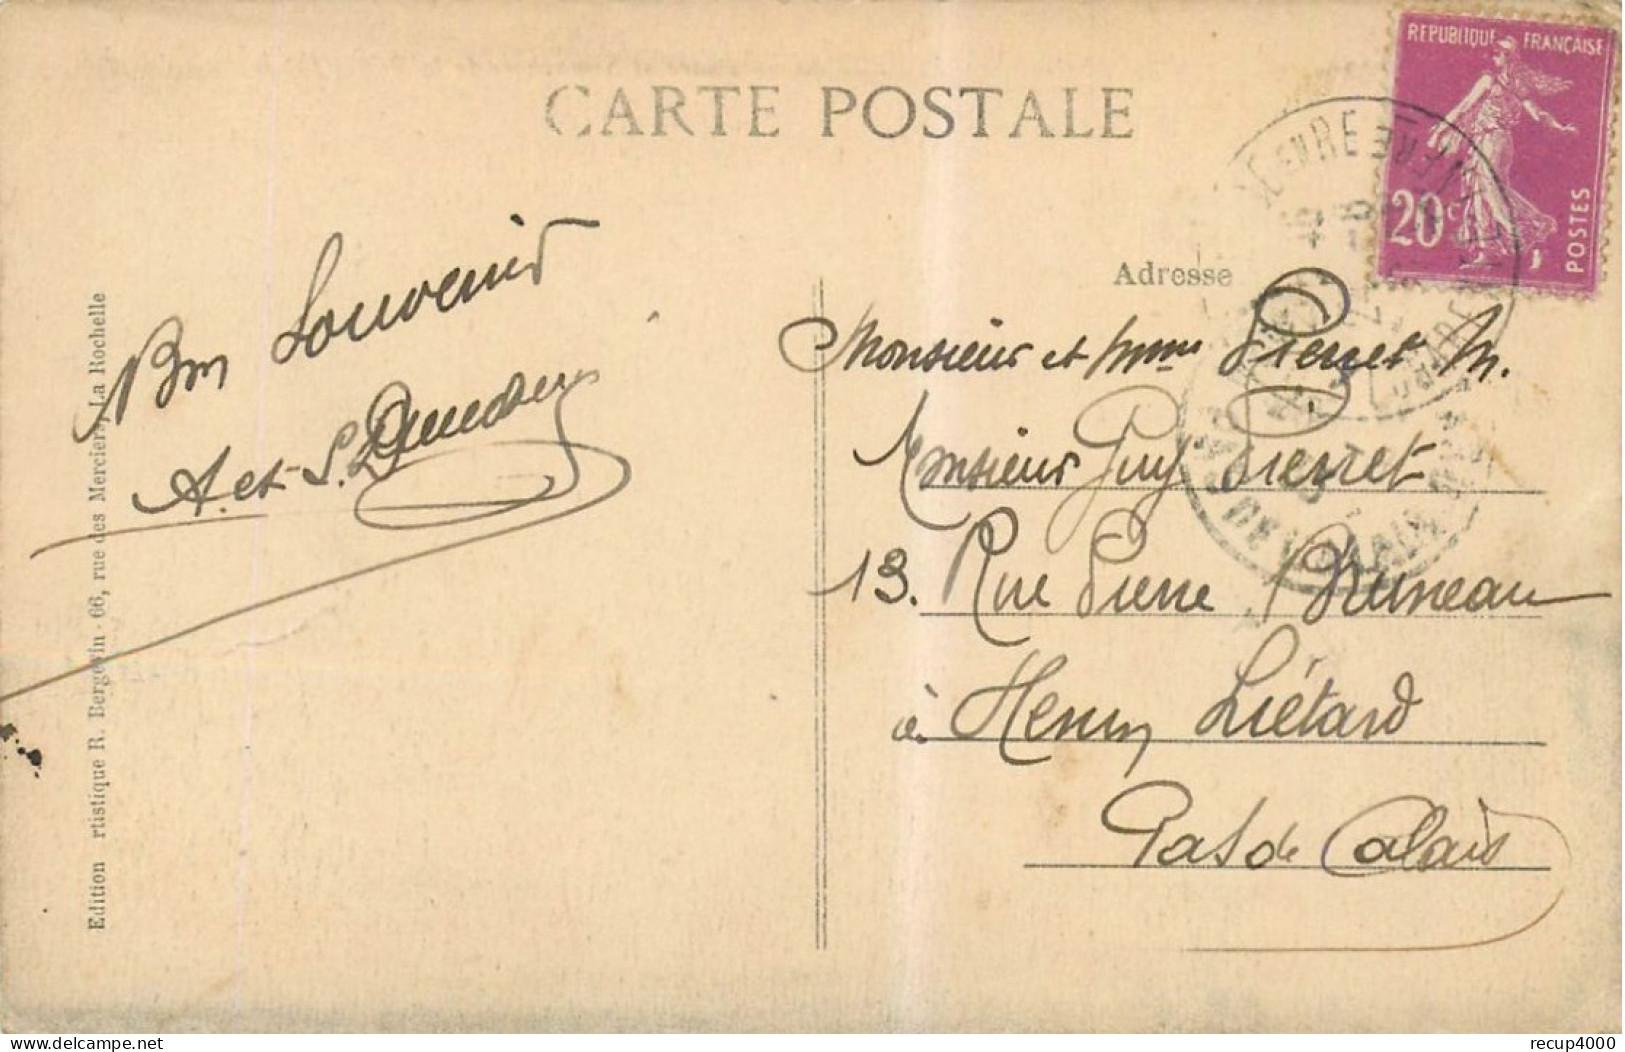 CARTE POSTALE
REPUBLIQUE FRANÇAISE
20c
POSTES
Adresse
Bon Souvenir
A. et S.
Monsieur et Mme Pierret M.
Monsieur Guy Pierret
13. Rue Pierre Bruneau
à Henin Liétard
Pas de Calais
Edition rtistique R. Bergevin - 66, rue des Merciers, La Rochelle
delcampe.net
recup4000